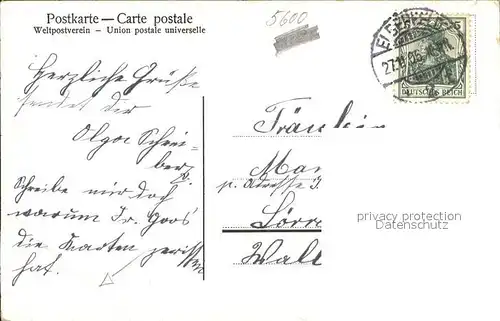 Postkarte — Carte postale
Weltpostverein – Union postale universelle
5600
ELBERFELD
27.11.05
5
DEUTSCHES REICH
Herzliche Grüße
sendet der
Olga Schrei-
berg
Schreibe mir doch
warum Fr. Goos
die Karten zerissen
hat.
Fräulein
Mar
p. Adresse F.
Lörr
Wall
privacy protection
Datenschutz